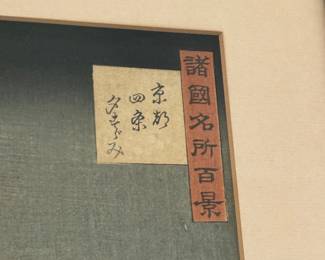 諸國名所百景
京都
四条
夕すゞみ